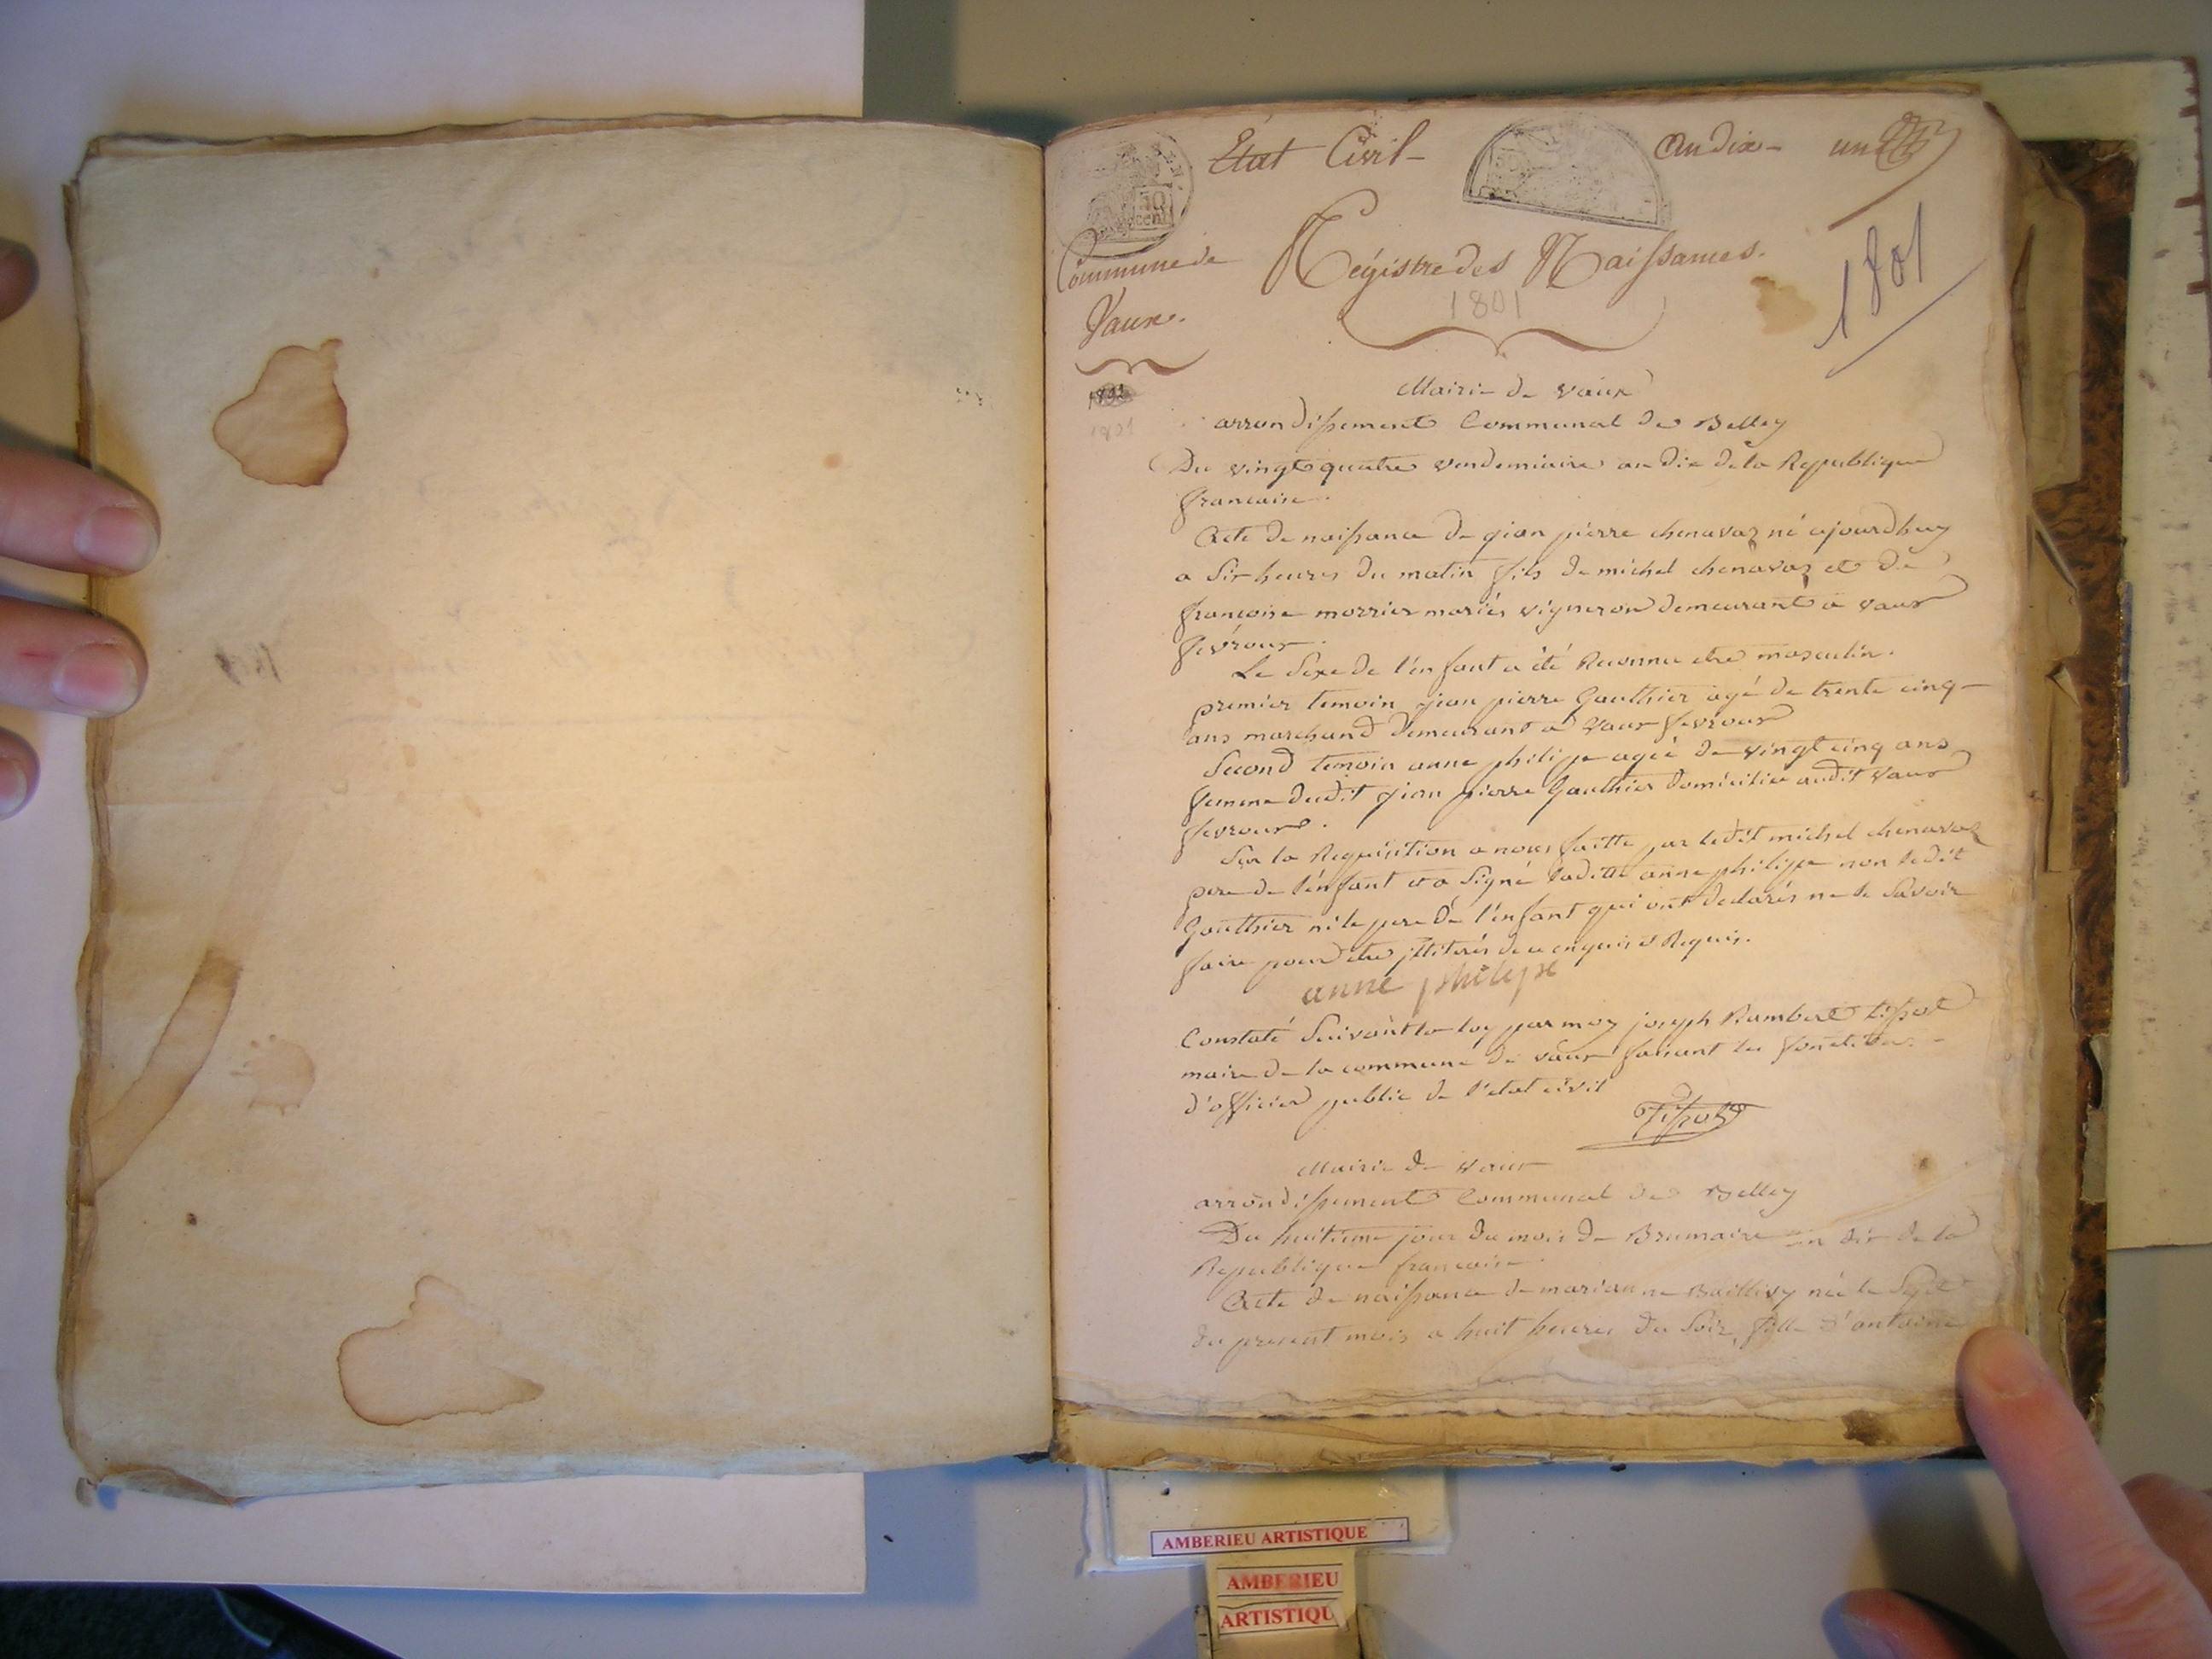 État Civil
an dix
un
50
cen
Commune de
Vaux.
Régistre des Naissances.
1801
1801
1801
Mairie de vaux
arrondissement Communal de Belley
Du vingt quatre vendemiaire an dix de la Republique
francaise.
Acte de naissance de jean pierre chenavaz né ajourdhuy
a six heures du matin fils de michel chenavaz et de
francoise morrier mariés vigneron demeurant a vaux
fevroux.
Le sexe de l'enfant a été Reconnu etre masculin.
premier temoin jean pierre Gauthier agé de trente cinq
ans marchand demeurant a vaux fevroux
Second temoin anne philipe ageé de vingt cinq ans
femme dudit jean pierre Gauthier domiciliée audit vaux
fevroux.
Sur la Requisition a nous faitte par ledit michel chenavaz
pere de l'enfant et a signé ladite anne philipe non ledit
Gauthier ni le pere de l'enfant qui ont declarés ne le savoir
faire pour etre illiterés de ce enquis et Requis.
anne philipe
Constaté suivant la loy par moy joseph Rambert tissot
maire de la commune de vaux faisant les fonctions
d'officier public de l'etat civil
Tissot
Mairie de vaux
arrondissement Communal de Belley
Du huitieme jour du mois de Brumaire an dix de la
Republique francaise.
Acte de naissance de marianne Baillivy née le sept
du present mois a huit heures du soir, fille d'antoine
AMBERIEU ARTISTIQUE
AMBERIEU
ARTISTIQU